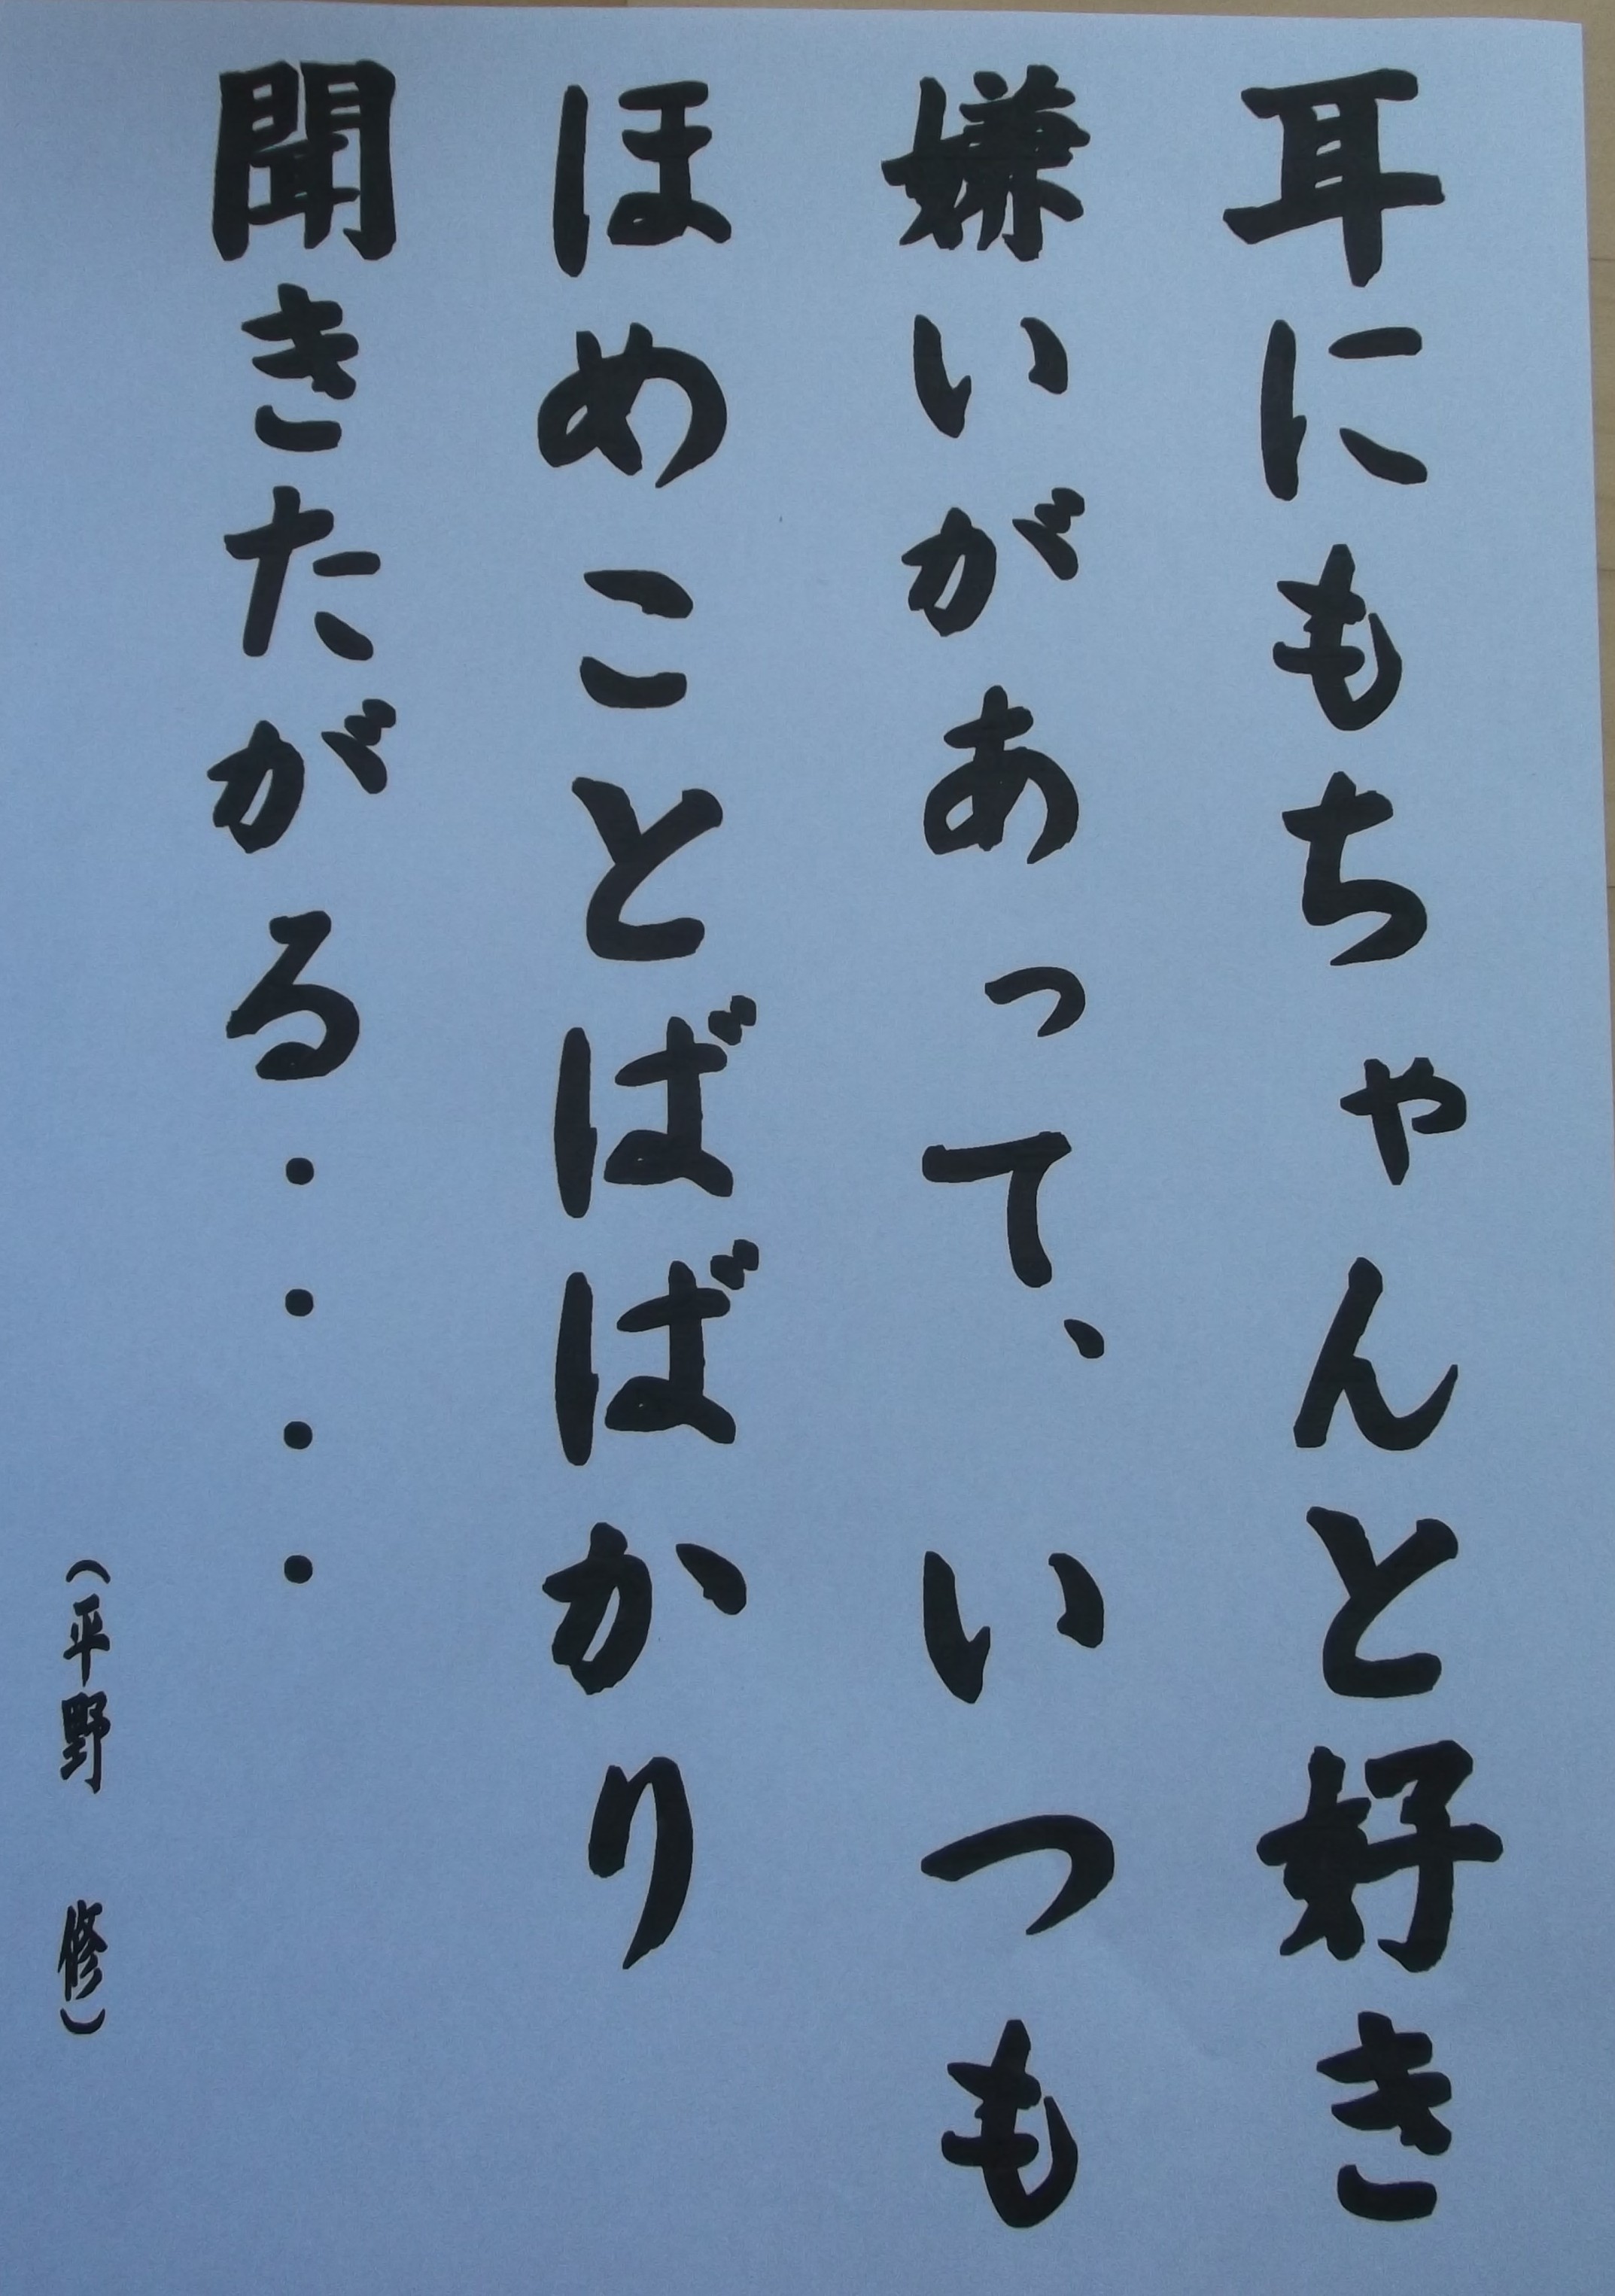 耳にもちゃんと好き
嫌いがあって、いつも
ほめことばばかり
聞きたがる・・・・
（平野　修）